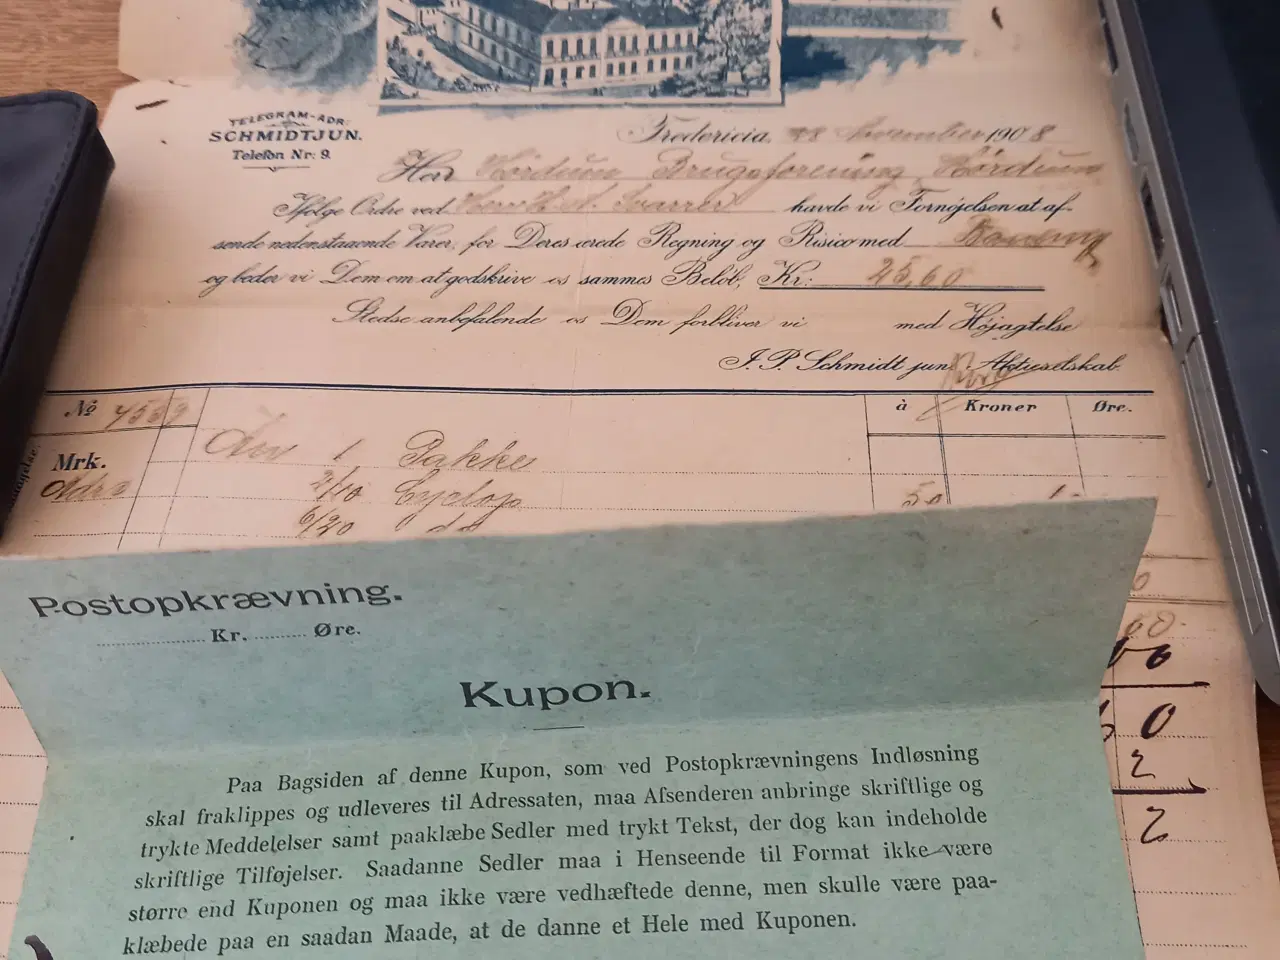 TELEGRAM-ADR:
SCHMIDTJUN.
Telefon Nr: 9.
Fredericia, November 1908
Herr Hördum Brugsforening, Hördum
Ifølge Ordre ved havde vi Fornøjelsen at af-
sende nedenstaaende Varer, for Deres ærede Regning og Risico med
og beder vi Dem om at godskrive os sammes Beløb, Kr: 25,60
Stedse anbefalende os Dem forbliver vi med Højagtelse
J. P. Schmidt jun. Aktieselskab.
No 4539 à Kroner Øre.
Mrk. 1 Pakke
2/10 Cyclop 50 1
6/20 do
Postopkrævning.
Kr. Øre.
Kupon.
Paa Bagsiden af denne Kupon, som ved Postopkrævningens Indløsning
skal fraklippes og udleveres til Adressaten, maa Afsenderen anbringe skriftlige og
trykte Meddelelser samt paaklæbe Sedler med trykt Tekst, der dog kan indeholde
skriftlige Tilføjelser. Saadanne Sedler maa i Henseende til Format ikke være
større end Kuponen og maa ikke være vedhæftede denne, men skulle være paa-
klæbede paa en saadan Maade, at de danne et Hele med Kuponen.
0
60
0
2
2